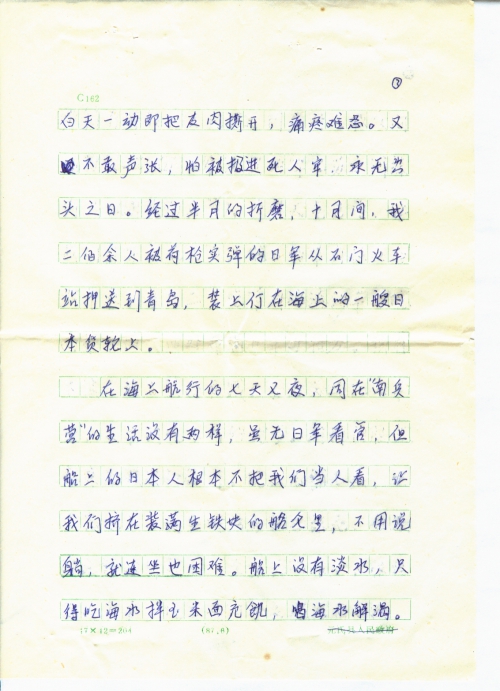 ③
C162
白天一动即把皮肉撕开，痛疼难忍。又
不敢声张，怕被抬进死人牢，永无出
头之日。经过半月的折磨，十月间，我
二佰余人被荷枪实弹的日军从石门火车
站押送到青岛，装上行在海上的一艘日
本货轮上。
在海上航行的七天七夜，同在"南兵
营"的生活没有两样，虽无日军看官，但
船上的日本人根本不把我们当人看，让
我们挤在装满生铁块的船仓里，不用说
躺，就连坐也困难。船上没有淡水，只
得吃海水拌玉米面充饥，喝海水解渴。
17×12=204 (87.8)